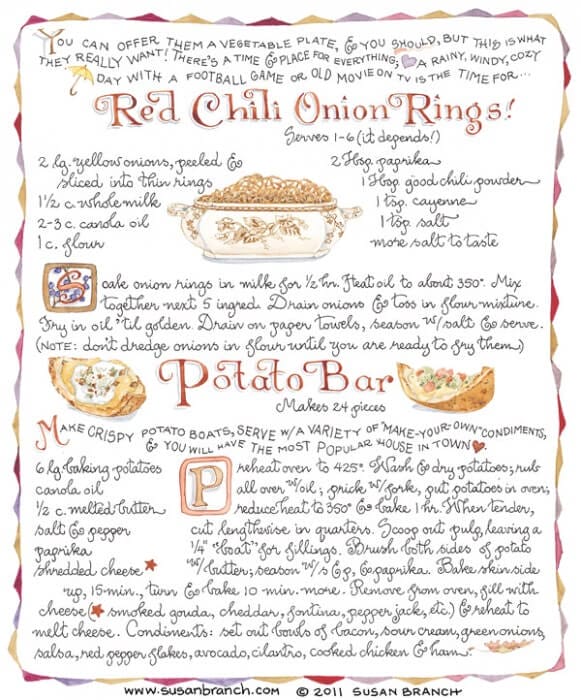 You can offer them a vegetable plate, & you should, but this is what
they really want! There's a time & place for everything; a rainy, windy, cozy
day with a football game or old movie on TV is the time for...
Red Chili Onion Rings!
Serves 1-6 (it depends!)
2 lg. yellow onions, peeled &
sliced into thin rings
1 1/2 c. whole milk
2-3 c. canola oil
1 c. flour
2 Tbsp. paprika
1 Tbsp. good chili powder
1 tsp. cayenne
1 tsp. salt
more salt to taste
Soak onion rings in milk for 1/2 hr. Heat oil to about 350°. Mix
together next 5 ingred. Drain onions & toss in flour mixture.
Fry in oil 'til golden. Drain on paper towels, season w/salt & serve.
(NOTE: don't dredge onions in flour until you are ready to fry them.)
Potato Bar
Makes 24 pieces
Make crispy potato boats, serve w/ a variety of "make-your-own" condiments,
& you will have the most popular house in town.
6 lg. baking potatoes
canola oil
1/2 c. melted butter
salt & pepper
paprika
shredded cheese
Preheat oven to 425°. Wash & dry potatoes; rub
all over w/oil; prick w/fork, put potatoes in oven;
reduce heat to 350° & bake 1 hr. When tender,
cut lengthwise in quarters. Scoop out pulp, leaving a
1/4" "boat" for fillings. Brush both sides of potato
w/butter; season w/s & p, & paprika. Bake skin side
up, 15 min., turn & bake 10 min. more. Remove from oven, fill with
cheese (smoked gouda, cheddar, fontina, pepper jack, etc.) & reheat to
melt cheese. Condiments: set out bowls of bacon, sour cream, green onions,
salsa, red pepper flakes, avocado, cilantro, cooked chicken & ham.
www.susanbranch.com © 2011 Susan Branch